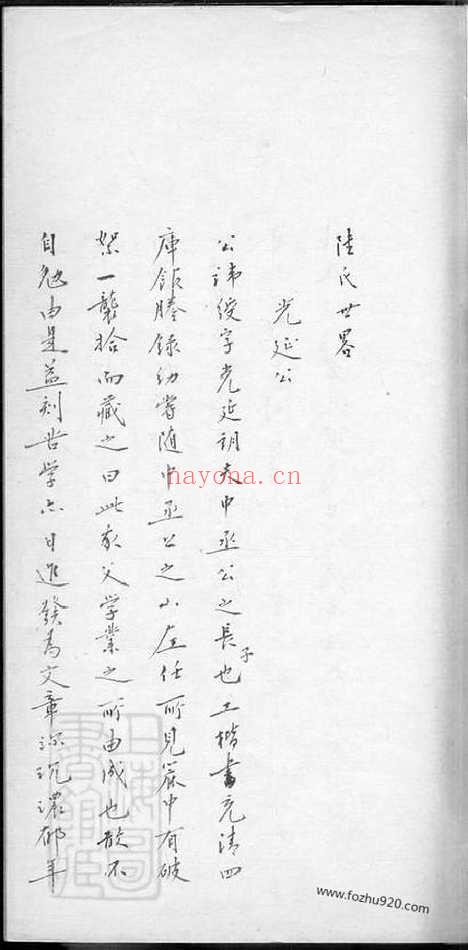 陸氏世畧
光延公
公諱綬字光延朗夫中丞公之長子也工楷書充清四
庫館謄錄幼嘗隨中丞公之山左任所見簏中有破
絮一襲拾而藏之曰此家父学業之所由成也敢不
自勉由是益刻苦学亦日進發為文章深沉濃郁年
上海圖書館藏
hayona.cn
www.fozhu920.com